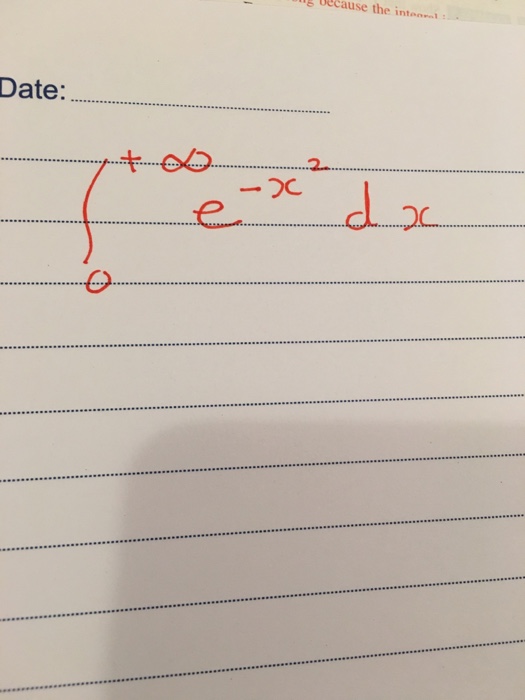 because the
Date:
∫₀^{+∞} e^{-x²} dx